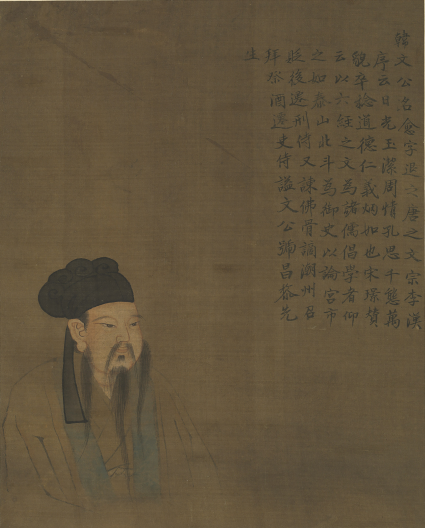 韓文公名愈字退之唐之文宗李漢
序云日光玉潔周情孔思千態萬
貌卒澤道德仁義炳如也宋璟賛
云以六經之文為諸儒倡學者仰
之如泰山北斗為御史以論宮市
貶後遷刑侍又諫佛骨謫潮州召
拜祭酒遷吏侍諡文公號昌黎先
生